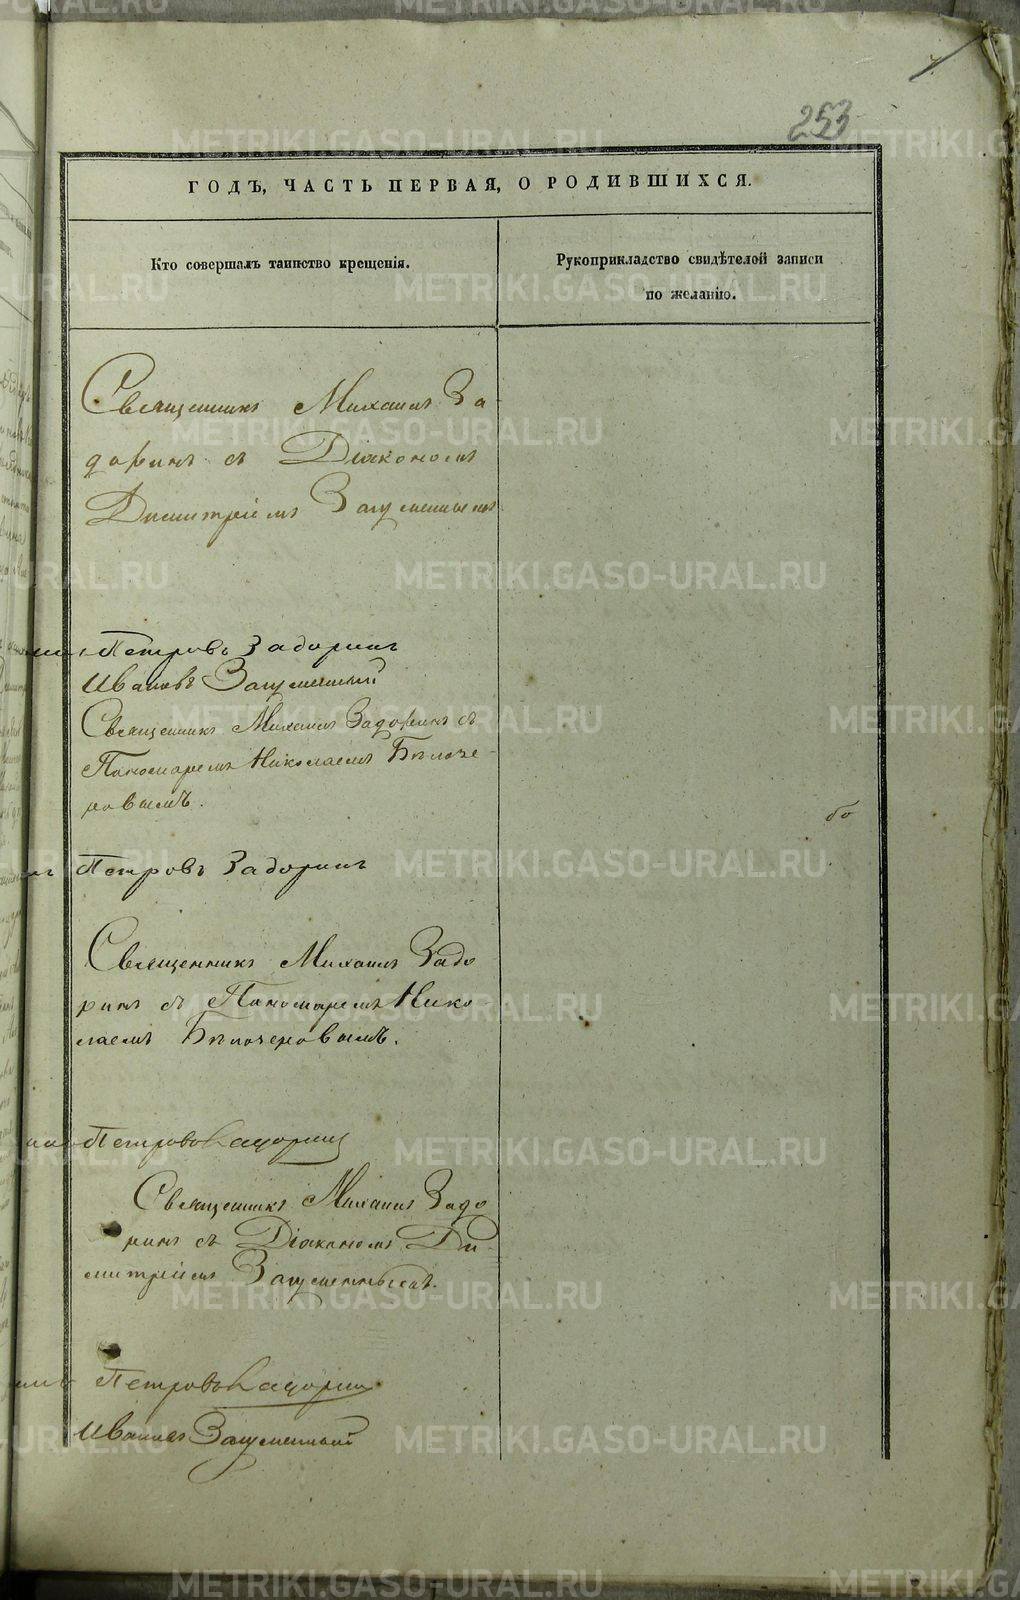 253
ГОДЪ, ЧАСТЬ ПЕРВАЯ, О РОДИВШИХСЯ.
Кто совершалъ таинство крещенія.
Рукоприкладство свидѣтелей записи
по желанію.
Священникъ Михаилъ За
доринъ съ Діакономъ
Димитріемъ Загуменнымъ
Петровъ Задоринъ
Ивановъ Загуменный
Священникъ Михаилъ Задоринъ съ
Пономаремъ Николаемъ Бѣлоче-
новымъ.
бо
Петровъ Задоринъ
Священникъ Михаилъ Задо
ринъ съ Пономаремъ Нико
лаемъ Бѣлоченовымъ.
Петровъ Задоринъ
Священникъ Михаилъ Задо
ринъ съ Діакономъ Ди-
митріемъ Загуменнымъ.
Петровъ Задоринъ
Ивановъ Загуменный
METRIKI.GASO-URAL.RU